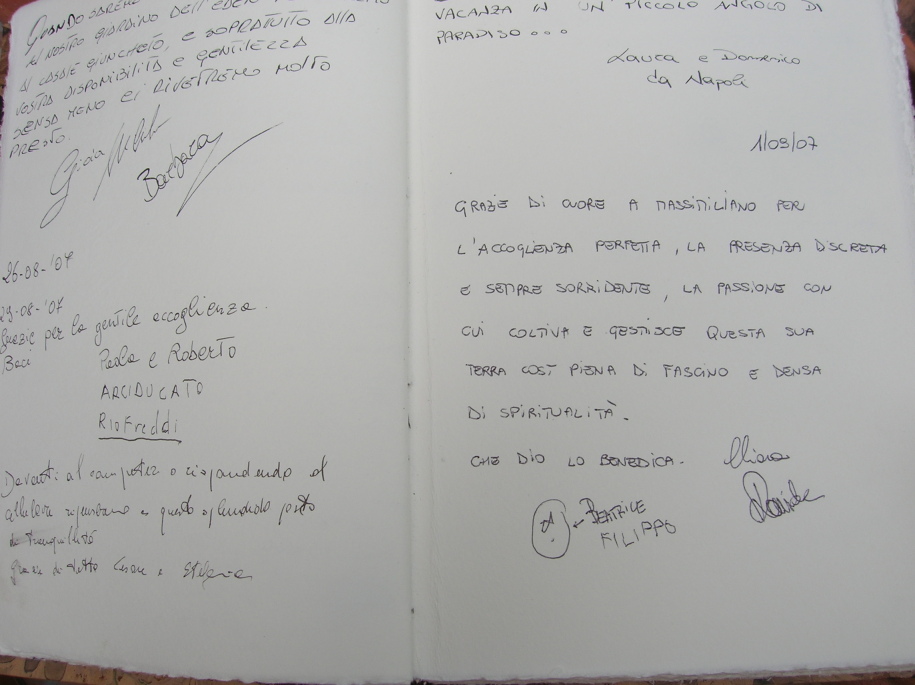 QUANDO
AL NOSTRO GIARDINO DELL'EDEN
AL CASALE GIUNCHETO, E SOPRATUTTO ALLA
VOSTRA DISPONIBILITÀ E GENTILEZZA
SENSA MENO CI RIVETREMO MOLTO
PRESTO.
Gioia
Barbara
26-08-'07
29-08-'07
Grazie per la gentile accoglienza.
Baci
Paola e Roberto
ARCIDUCATO
RIOFREDDI
Davanti al computer o rispondendo al
questo splendido posto
di tranquillità
Grazie di tutto Cesare e Stefania
VACANZA IN UN PICCOLO ANGOLO DI
PARADISO...
Laura e Domenico
da Napoli
1/09/07
GRAZIE DI CUORE A MASSIMILIANO PER
L'ACCOGLIENZA PERFETTA, LA PRESENZA DISCRETA
E SEMPRE SORRIDENTE, LA PASSIONE CON
CUI COLTIVA E GESTISCE QUESTA SUA
TERRA COSÌ PIENA DI FASCINO E DENSA
DI SPIRITUALITÀ.
CHE DIO LO BENEDICA. Chiara
BEATRICE
FILIPPO